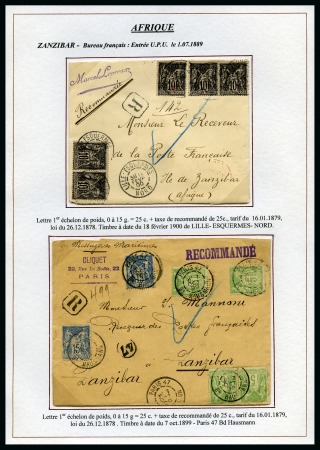 AFRIQUE
ZANZIBAR - Bureau français : Entrée U.P.U. le 1.07.1889
Recommandée
R
Monsieur Le Receveur
de la Poste Française
Ile de Zanzibar
(Afrique)
Lettre 1er échelon de poids, 0 à 15 g. = 25 c. + taxe de recommandé de 25c., tarif du 16.01.1879,
loi du 26.12.1878. Timbre à date du 18 février 1900 de LILLE- ESQUERMES- NORD.
Messageries Maritimes
CLIQUET
PARIS
RECOMMANDÉ
R
Monsieur Mannoni
Zanzibar
Zanzibar
Lettre 1er échelon de poids, 0 à 15 g = 25 c. + taxe de recommandé de 25 c., tarif du 16.01.1879,
loi du 26.12.1878 . Timbre à date du 7 oct.1899 - Paris 47 Bd Hausmann